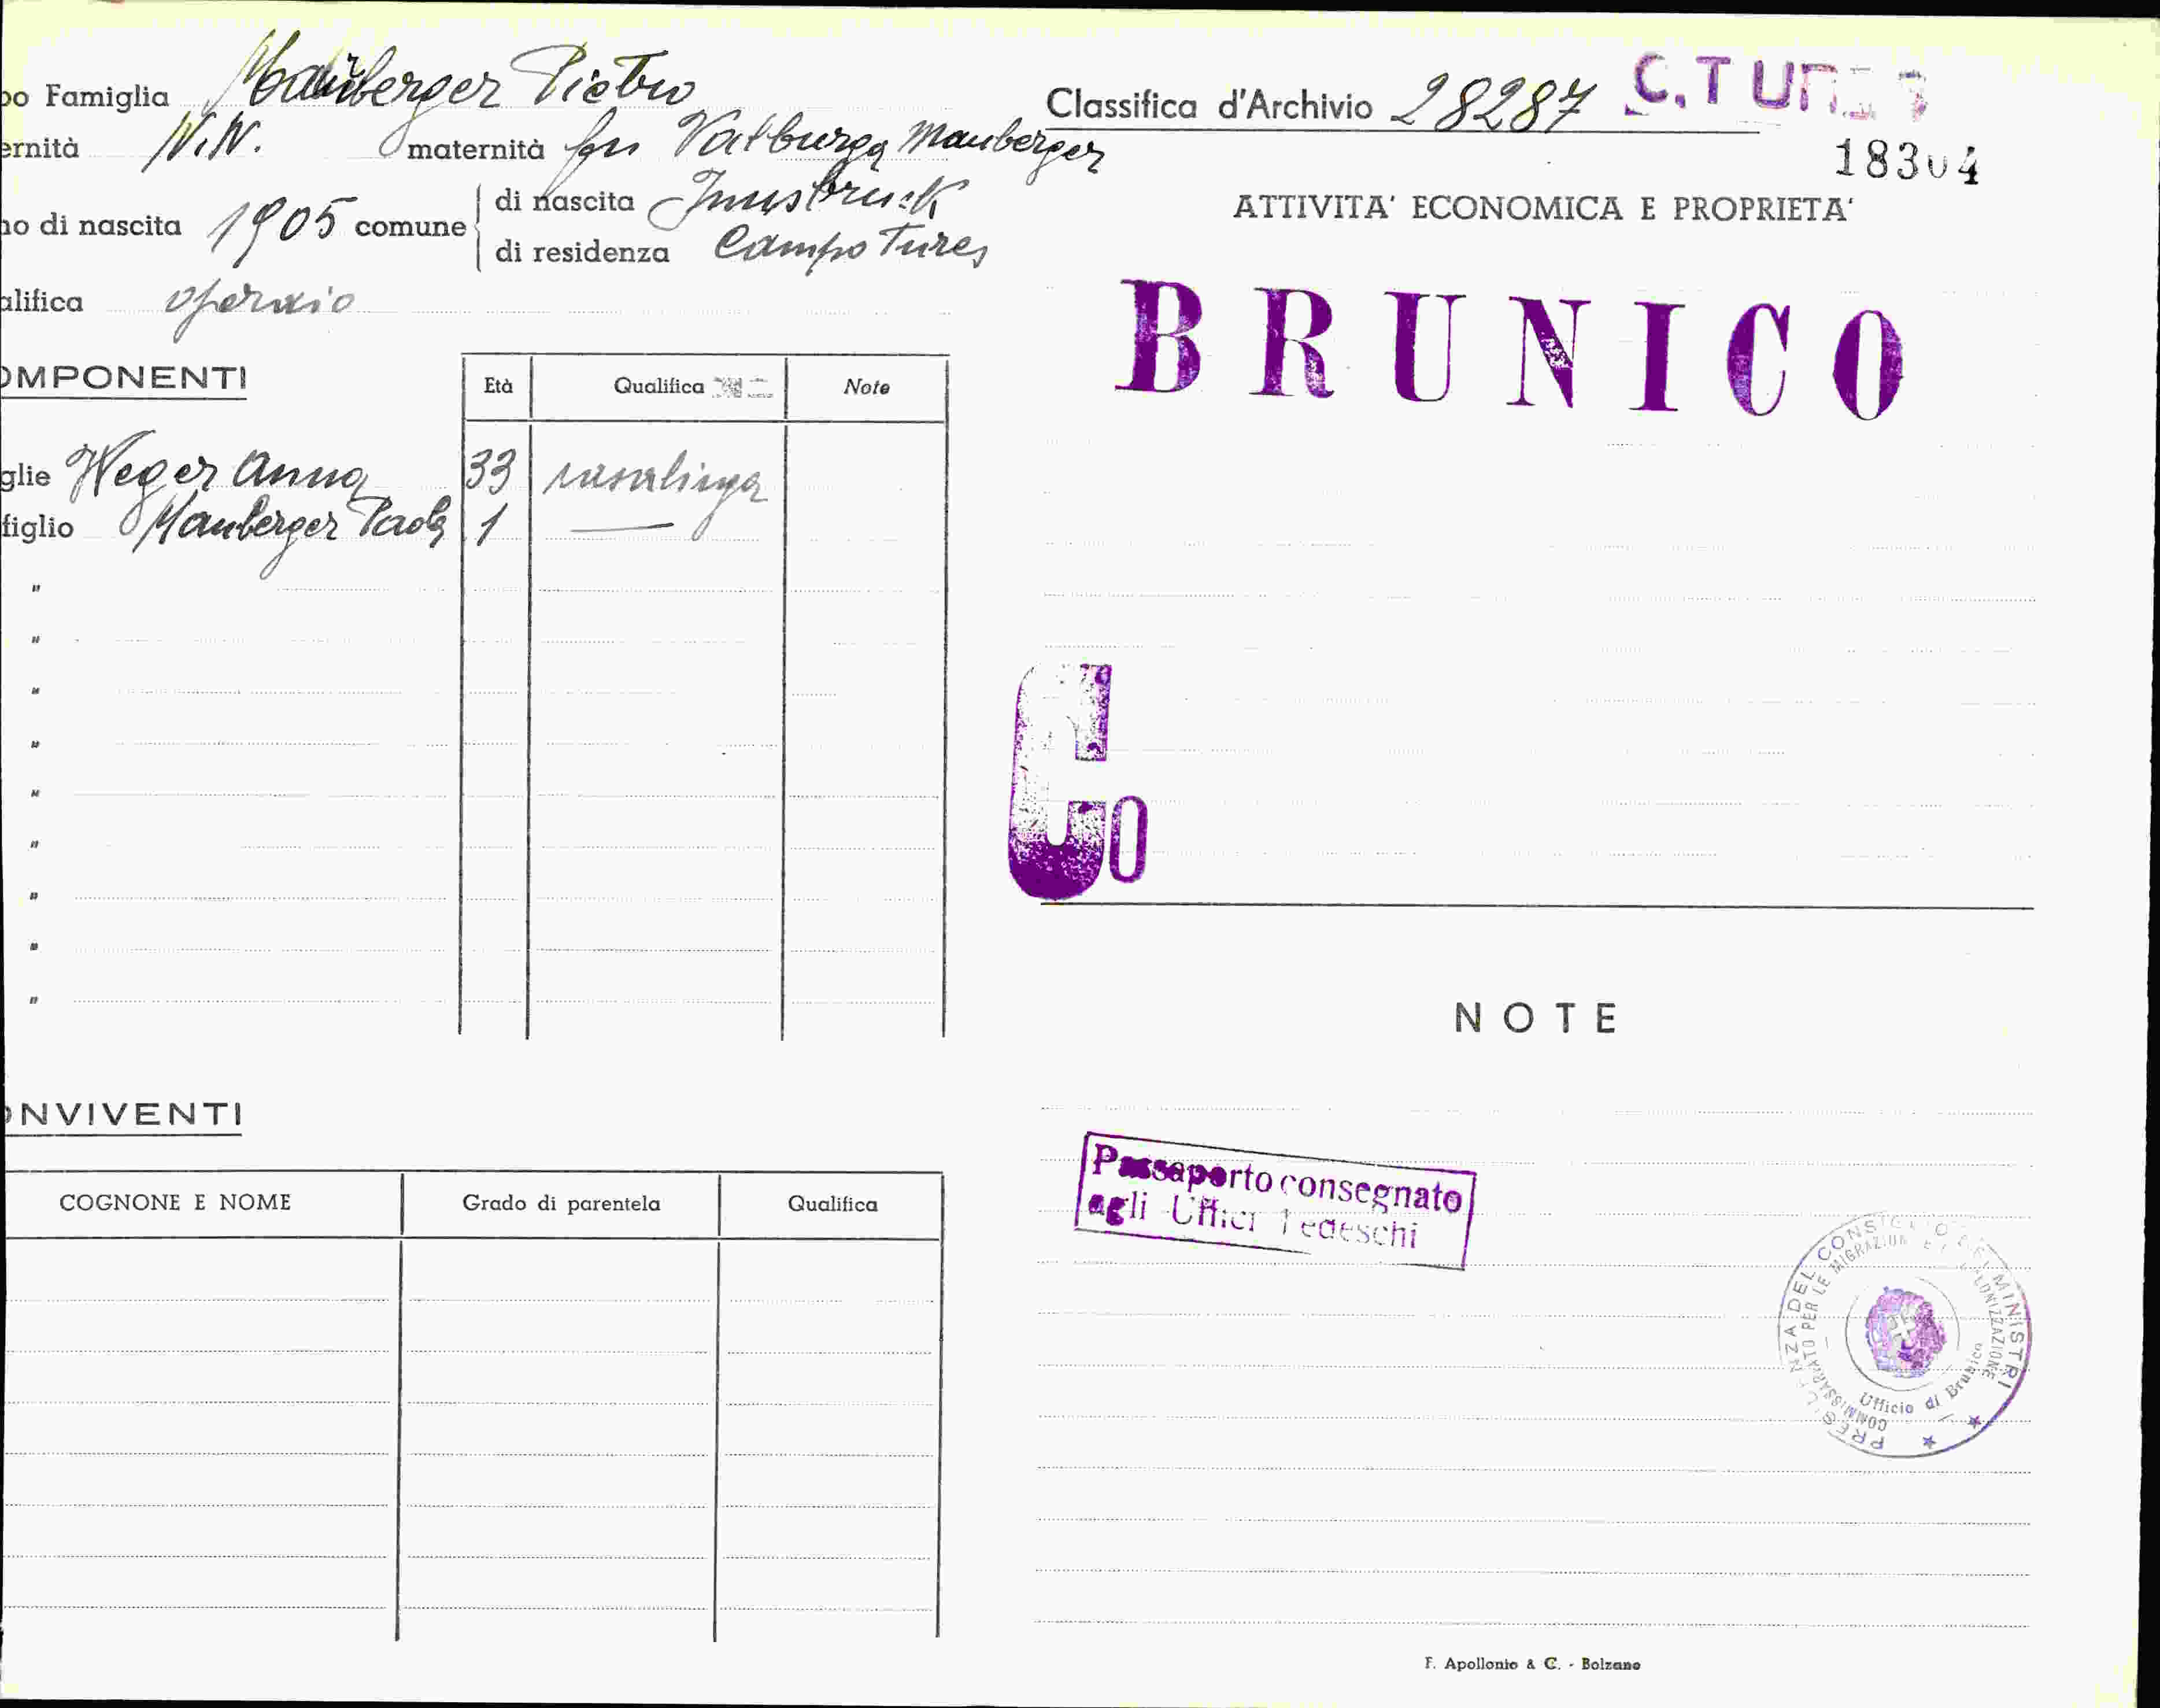 po Famiglia Mauberger Pietro
ernità N.N. maternità fu Valburga Mauberger
no di nascita 1905 comune di nascita Innsbruck
di residenza Campo Tures
alifica operaio
OMPONENTI
Età Qualifica Note
glie Weger Anna 33 casalinga
figlio Mauberger Paola 1 —
"
"
"
"
"
"
"
"
"
ONVIVENTI
COGNONE E NOME Grado di parentela Qualifica
Classifica d'Archivio 28287 C.TURES
18304
ATTIVITA' ECONOMICA E PROPRIETA'
BRUNICO
G0
NOTE
Passaporto consegnato
agli Uffici Tedeschi
PRESIDENZA DEL CONSIGLIO DEI MINISTRI
COMMISSARIATO PER LE MIGRAZIONI E LA COLONIZZAZIONE
Ufficio di Brunico
F. Apollonio & C. - Bolzano